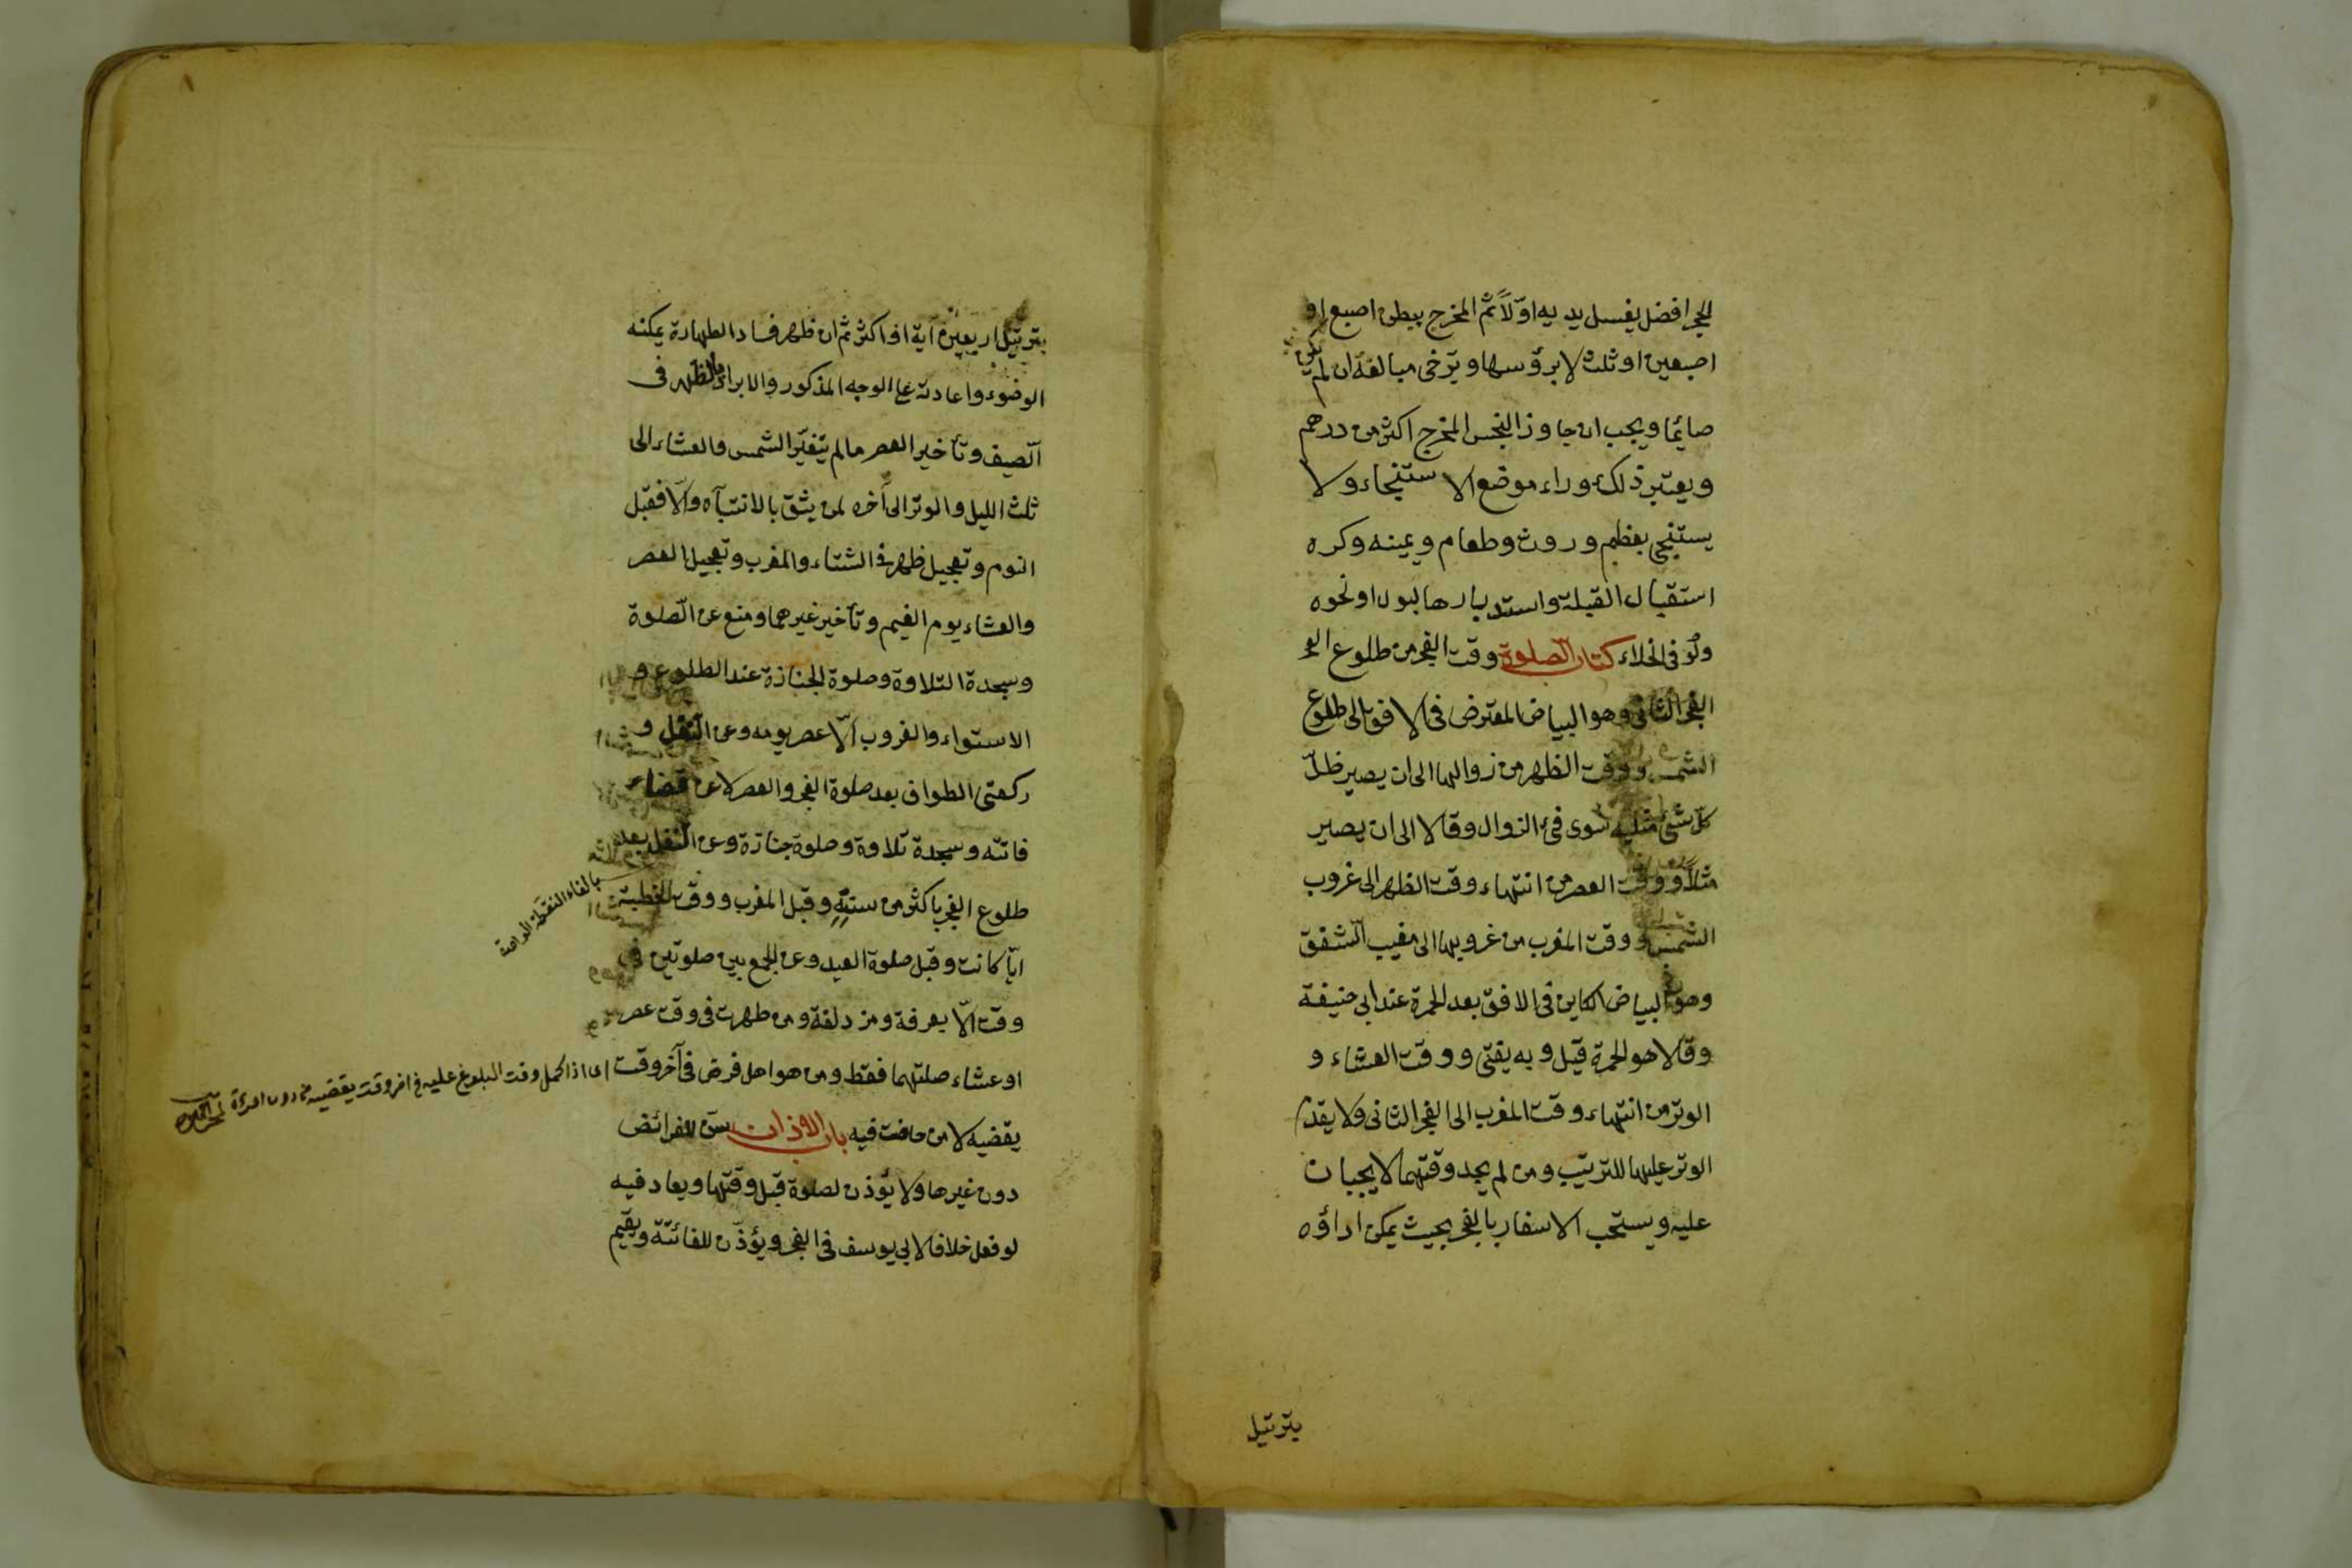 الحجر افضل يغسل يديه اوّلاً ثم المخرج ببطن اصبع او
اصبعين او ثلث لا برؤسها ويرخى مبالغة ان لم يكن
صائما ويجب ان جاوز النجس المخرج اكثر من درهم
ويعتبر ذلك وراء موضع الاستنجاء ولا
يستنجى بعظم وروث وطعام ويمينه وكره
استقبال القبلة واستدبارها لبول او نحوه
ولو فى الخلاء كتاب الصلوة وقت الفجر من طلوع
الفجر الثانى وهو البياض المعترض فى الافق الى طلوع
الشمس ووقت الظهر من زوالها الى ان يصير ظلّ
كلّ شئ مثليه سوى فئ الزوال وقالا الى ان يصير
مثلاً ووقت العصر من انتهاء وقت الظهر الى غروب
الشمس ووقت المغرب من غروبها الى مغيب الشفق
وهو البياض الكاين فى الافق بعد الحمرة عند ابى حنيفة
وقالا هو الحمرة قيل وبه يفتى ووقت العشاء و
الوتر من انتهاء وقت المغرب الى الفجر الثانى ولا يقدم
الوتر عليها للترتيب ومن لم يجد وقتهما لا يجبان
عليه ويستحب الاسفار بالفجر بحيث يمكن اداؤه
بترتيل
بترتيل اربعين آية او اكثر ثم ان ظهر فساد الطهارة يمكنه
الوضوء واعادته على الوجه المذكور والابراد بالظهر فى
الصيف وتأخير العصر مالم يتغيّر الشمس والعشاء الى
ثلث الليل والوتر الى آخره لمن يثق بالانتباه والّا فقبل
النوم وتعجيل ظهر فى الشتاء والمغرب وتعجيل العصر
والعشاء يوم الغيم وتأخير غيرهما ومنع عن الصلوة
وسجدة التلاوة وصلوة الجنازة عند الطلوع و
الاستواء والغروب الّا عصر يومه وعن التنفل و
ركعتى الطواف بعد صلوة الفجر والعصر لا عن قضاء
فائتة وسجدة تلاوة وصلوة جنازة وعن النفل بعد
طلوع الفجر باكثر من سنته وقبل المغرب ووقت الخطبة
ايّا كانت وقبل صلوة العيد وعن الجمع بين صلوتين فى
وقت الّا بعرفة ومزدلفة ومن طهرت فى وقت عصر
او عشاء صلتهما فقط ومن هو اهل فرض فى آخر وقت
يقضيه لا من حاضت فيه باب الاذان سن للفرائض
دون غيرها ولا يؤذن لصلوة قبل وقتها ويعاد فيه
لو فعل خلافا لابى يوسف فى الفجر ويؤذن للفائتة ويقيم
بالفاء النقطة الواحدة